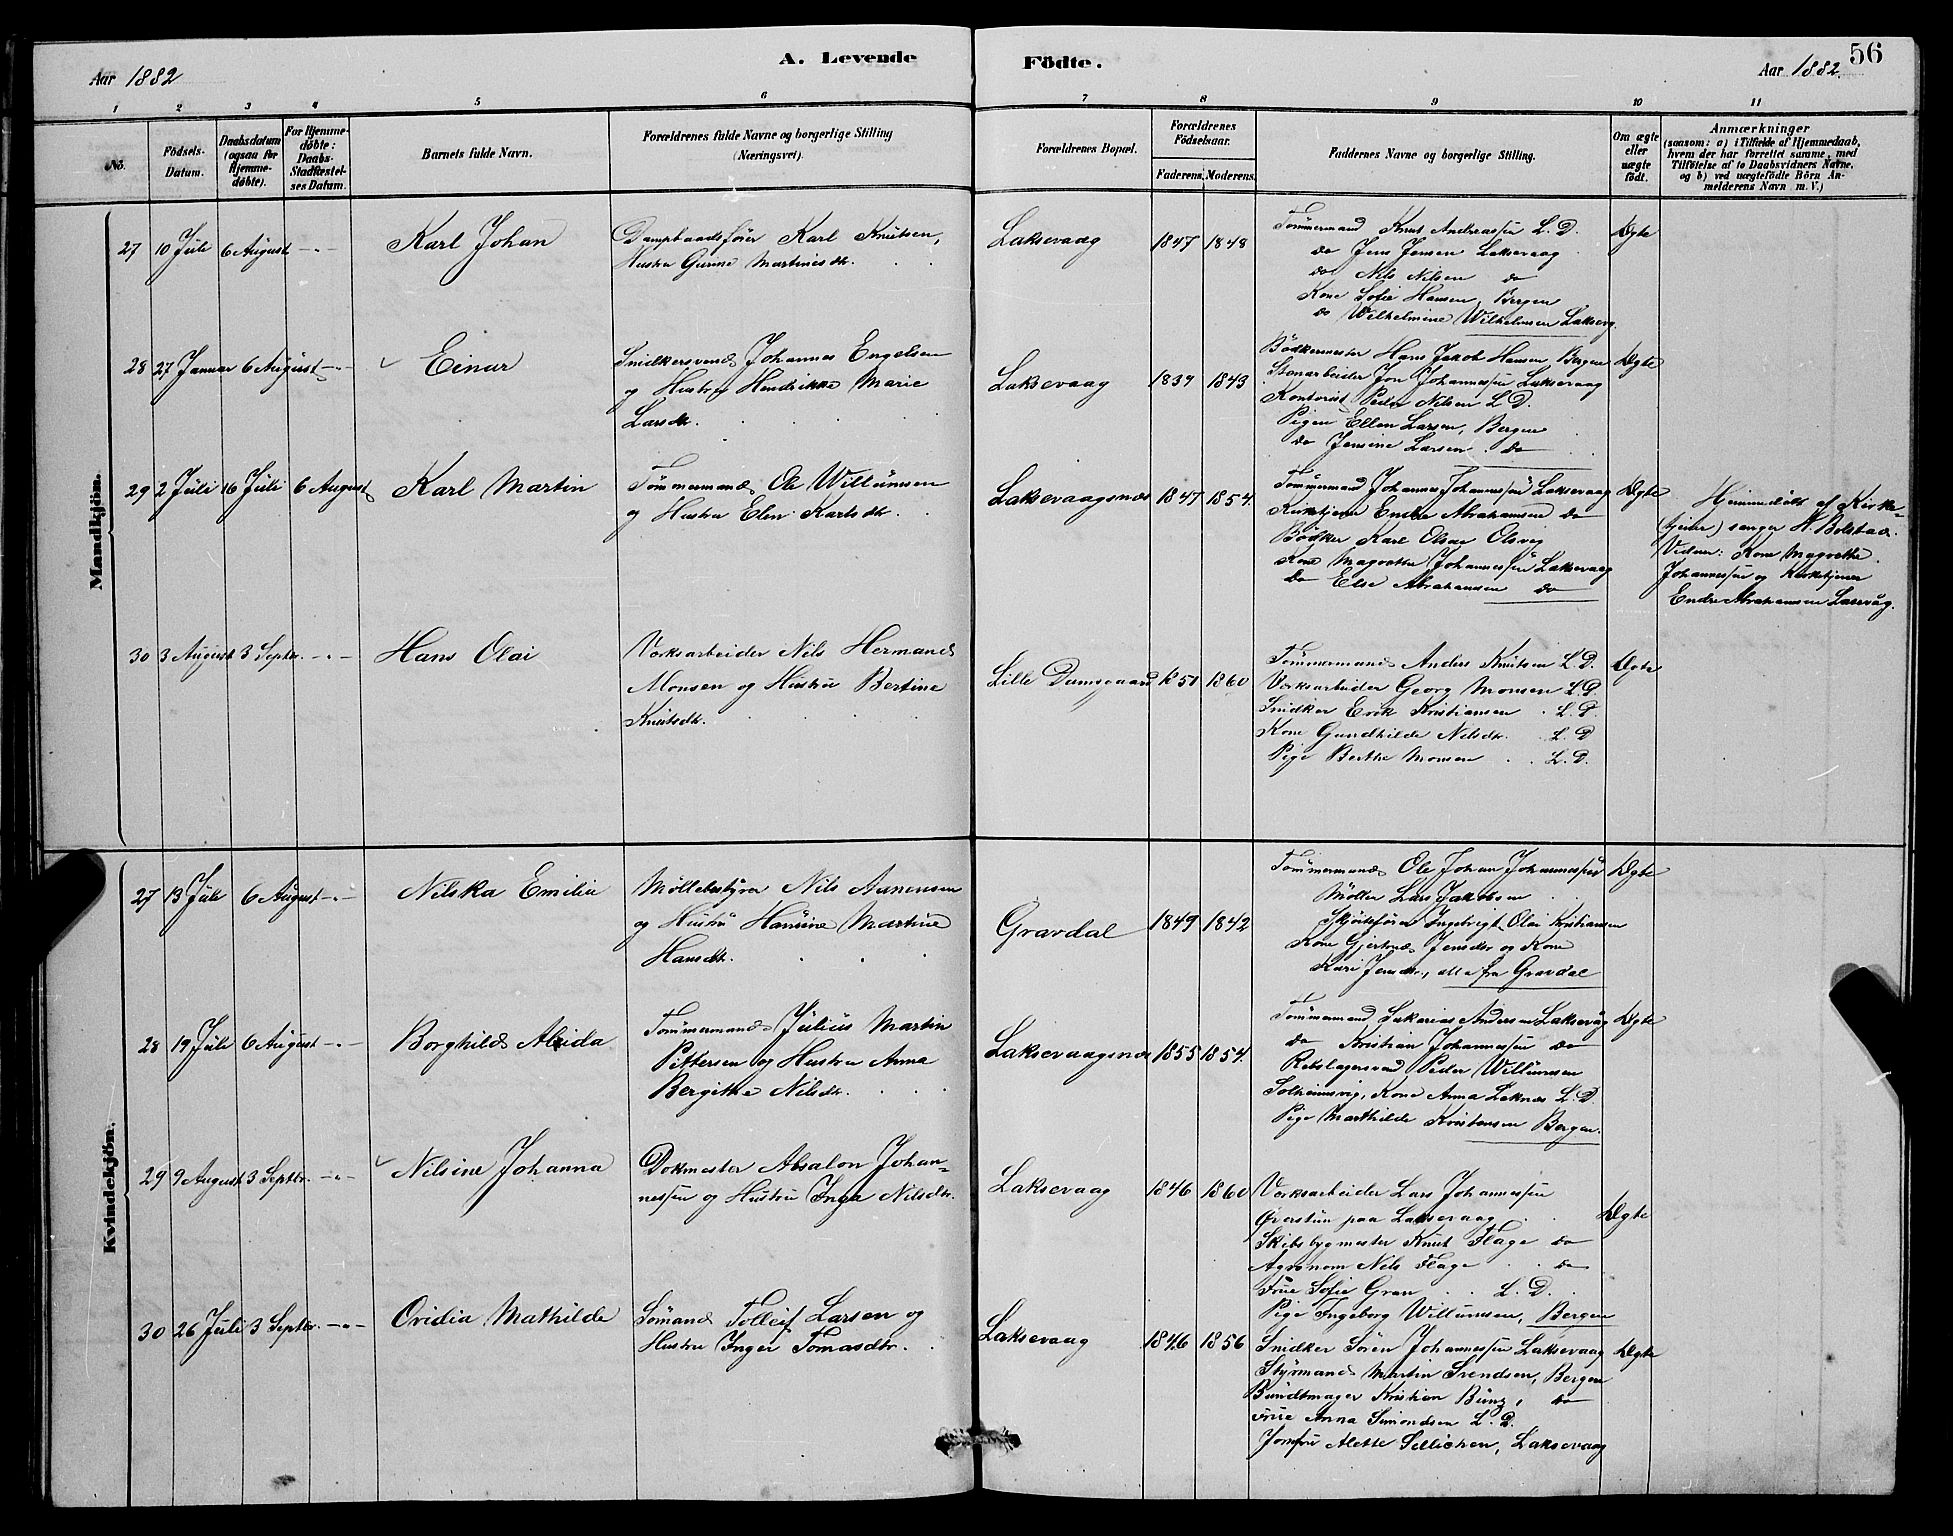 A. Levende Födte.
56
Aar 1882
Aar 1882.
1 2 3 4 5 6 7 8 9 10 11
No.
Födsels-Datum.
Daabsdatum (ogsaa for Hjemme-döbte).
For Hjemme-döbte: Daabs-Stadfæstel-ses Datum.
Barnets fulde Navn.
Forældrenes fulde Navne og borgerlige Stilling (Næringsvei).
Forældrenes Bopæl.
Forældrenes Födselsaar.
Faderens. Moderens.
Faddernes Navne og borgerlige Stilling.
Om ægte eller uægte födt.
Anmærkninger
(saasom: a) i Tilfælde af Hjemmedaab,
hvem der har forrettet samme, med
Tilföielse af to Daabsvidners Navne,
og b) ved uægtefödte Börn An-
melderens Navn m. V.)
Mandkjön.
27 10 Juli 6 August -"- Karl Johan
Dampbaadsfører Karl Knutsen,
Hustru Gurine Martinesdtr.
Laksevaag 1847 1848
Tømmermand Knut Andreassen L. D.
do Jens Jensen Laksevaag
do Nils Nilsen do
Kone Sofie Hansen, Bergen
do Wilhelmine Wilhelmsen Laksevg.
Ægte
28 27 Januar 6 August -"- Einar
Snidkersvend Johannes Engelsen
og Hustru Hendrikke Marie
Larsdtr.
Laksevaag 1834 1843
Bødkermester Hans Jakob Hansen, Bergen
Stenarbeider Jon Johannessen Laksevaag
Kontorist Peder Nilsen L D.
Pigen Ellen Larsen, Bergen
do Jensine Larsen do
Ægte
29 2 Juli 16 Juli 6 August Karl Martin
Tømmermand Ole Willumsen
og Hustru Elen Karlsdtr.
Laksevaagsnes 1847 1854.
Tømmermand Johannes Johannessen Laksevaag
Kirketjener Endre Abrahamsen do
Bødker Karl Olsen Olsvig
Kone Magrethe Johannessen Laksevaag
do Else Abrahamsen do
Ægte
Hjemmedøbt af Kirke-
(tjener) sanger H. Bolstad.
Vidner: Kone Magrethe
Johannessen og Kirketjener
Endre Abrahamsen Laxevåg.
30 3 August 3 Septbr. -"- Hans Olai
Værksarbeider Nils Hermand
Monsen og Hustru Bertine
Knutsdtr.
Lille Damsgaard 1851 1860
Tømmermand Anders Knutsen L. D.
Værksarbeider Georg Monsen L. D.
Snidker Erik Kristiansen L. D.
Kone Gundhilde Nilsdtr. L. D
Pige Berthe Monsen L. D.
Ægte
Kvindekjön.
27 13 Juli 6 August -"- Nilska Emilia
Møllebestyrer Nils Aanensen
og Hustru Hansine Martine
Hansdtr.
Gravdal 1849 1842
Tømmermand Ole Johan Johannessen
Møller Lars Jakobsen
Skjøitefører Ingebrigt Olai Kristiansen
Kone Gjertrud Jensdtr og Kone
Kari Jensdtr., alle fra Gravdal
Ægte
28 19 Juli 6 August -"- Borghild Alida
Tømmermand Julius Martin
Pettersen og Hustru Anna
Bergithe Nilsdtr.
Laksevaagsnes 1855 1854.
Tømmermand Sakarias Andersen Laksevåg
do Kristian Johannessen do
Rebslagersvend Peder Willumsen
Solheimsvig, Kone Anna Leknes L. D.
Pige Marthilde Kristensen Bergen.
Ægte
29 9 August 3 Septbr. -"- Nilsine Johanna
Dokmester Absalon Johan-
nessen og Hustru Inga Nilsdtr.
Laksevaag 1846 1860
Værksarbeider Lars Johannessen
Øverstun paa Laksevaag
Skibsbygmester Knut Flage do
Agronom Nils Flage do
Frue Sofie Gran L. D.
Pige Ingeborg Willumsen, Bergen
Ægte
30 26 Juli 3 Septbr. -"- Ovidia Mathilde
Sømand Tolleif Larsen og
Hustru Inger Tomasdtr.
Laksevaag 1846 1856
Snidker Sören Johannessen Laksevaag
Styrmand Martin Svendsen, Bergen
Bundtmager Kristian Bünz, do
Frue Anna Simondsen L. D.
Jomfru Alette Sellichen, Laksevaag
Ægte